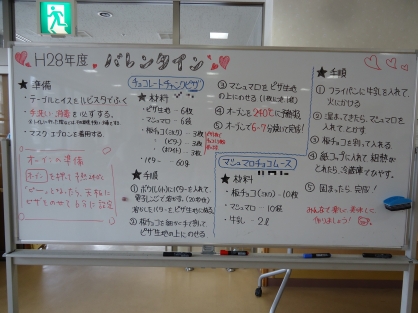 H28年度 バレンタイン
★ 準備
・テーブルとイスをハビスタでふく
・手洗い 消毒をする。
・マスク エプロンを着用する。
オーブンの準備
チョコレートチャンクピザ
★ 材料
・ピザ生地 - 6枚
・マシュマロ - 6袋
・板チョコ(ミルク) - 3枚
(ビター) - 3枚
(ホワイト) - 3枚
・バター - 60g
★ 手順
① ボウル(小)にバターを入れて
電子レンジで溶かす。(20秒位)
溶かしたバターをピザ生地に塗る
② 板チョコを細かく手で割って
ピザ生地の上にのせる
③ マシュマロをピザ生地の
上にのせる
④ オーブンを240℃に予熱
⑤ オーブンで6-7分焼いて完成!
マシュマロチョコムース
★ 材料
・板チョコ(ミルク) - 10枚
・マシュマロ - 10袋
・牛乳 - 2ℓ
★ 手順
① フライパンに牛乳を入れて
火にかける
② 温まってきたらマシュマロを
入れてとかす
③ 板チョコを割って入れる
④ 紙コップに入れて粗熱が
とれたら、冷蔵庫でひやす。
⑤ 固まったら、完成!
みんなで楽しく美味しく
作りましょう!